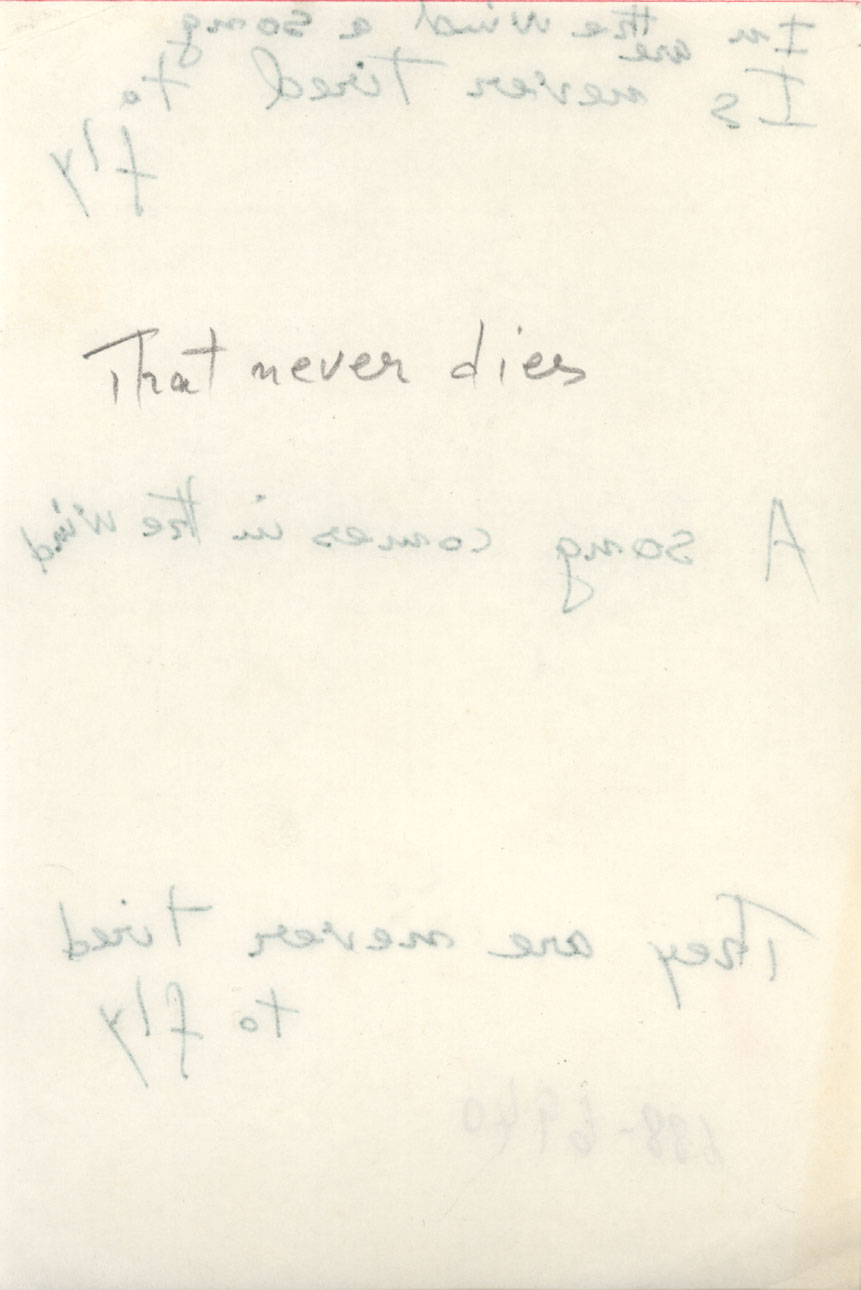 In the wind a song
are
Is never tired to
fly
That never dies
A song comes in the wind
They are never tired
to fly
688-6940